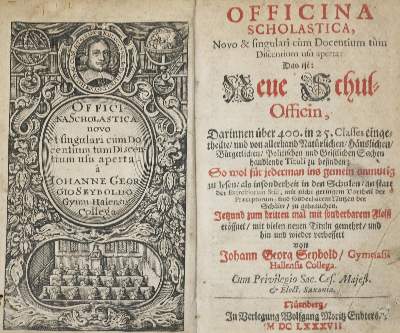 OFFICI
NA SCHOLASTICA
novo
et singulari cum Do
centium tum Discen
tium usu aperta
à
IOHANNE GEOR
GIO SEYBOLDO
Gymn. Halensis
Collega
OFFICINA
SCHOLASTICA,
Novo & singulari cùm Docentium tùm
Discentium usu aperta:
Das ist:
Neue Schul-
Officin,
Darinnen über 400. in 25. Classes einge-
theilte/ und von allerhand Natürlichen/ Häußlichen/
Bürgerlichen/ Politischen und Geistlichen Sachen
handlende Tituli zu befinden;
So wol für jederman ins gemein anmutig
zu lesen/ als insonderheit in den Schulen/ an statt
der Exercitiorum Styli, mit nicht geringem Vortheil der
Præceptorum, und sonderbarem Nutzen der
Schüler/ zu gebrauchen.
Jetzund zum dritten mal mit sonderbarem Fleiß
eröffnet/ mit vielen neuen Tituln gemehret/ und
hin und wieder verbessert
von
Johann Georg Seybold/ Gymnasii
Hallensis Collega.
Cum Privilegio Sac. Cæs. Majest.
& Elect. Saxonia.
Nürnberg/
In Verlegung Wolfgang Moritz Endters/
M DC LXXXVII.